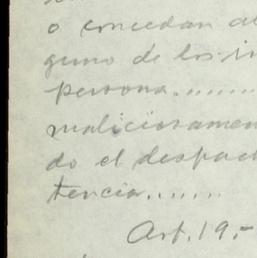 o concedan al
guno de los in
persona........
maliciosamen
do el despac
tencia.......
Art. 19.-